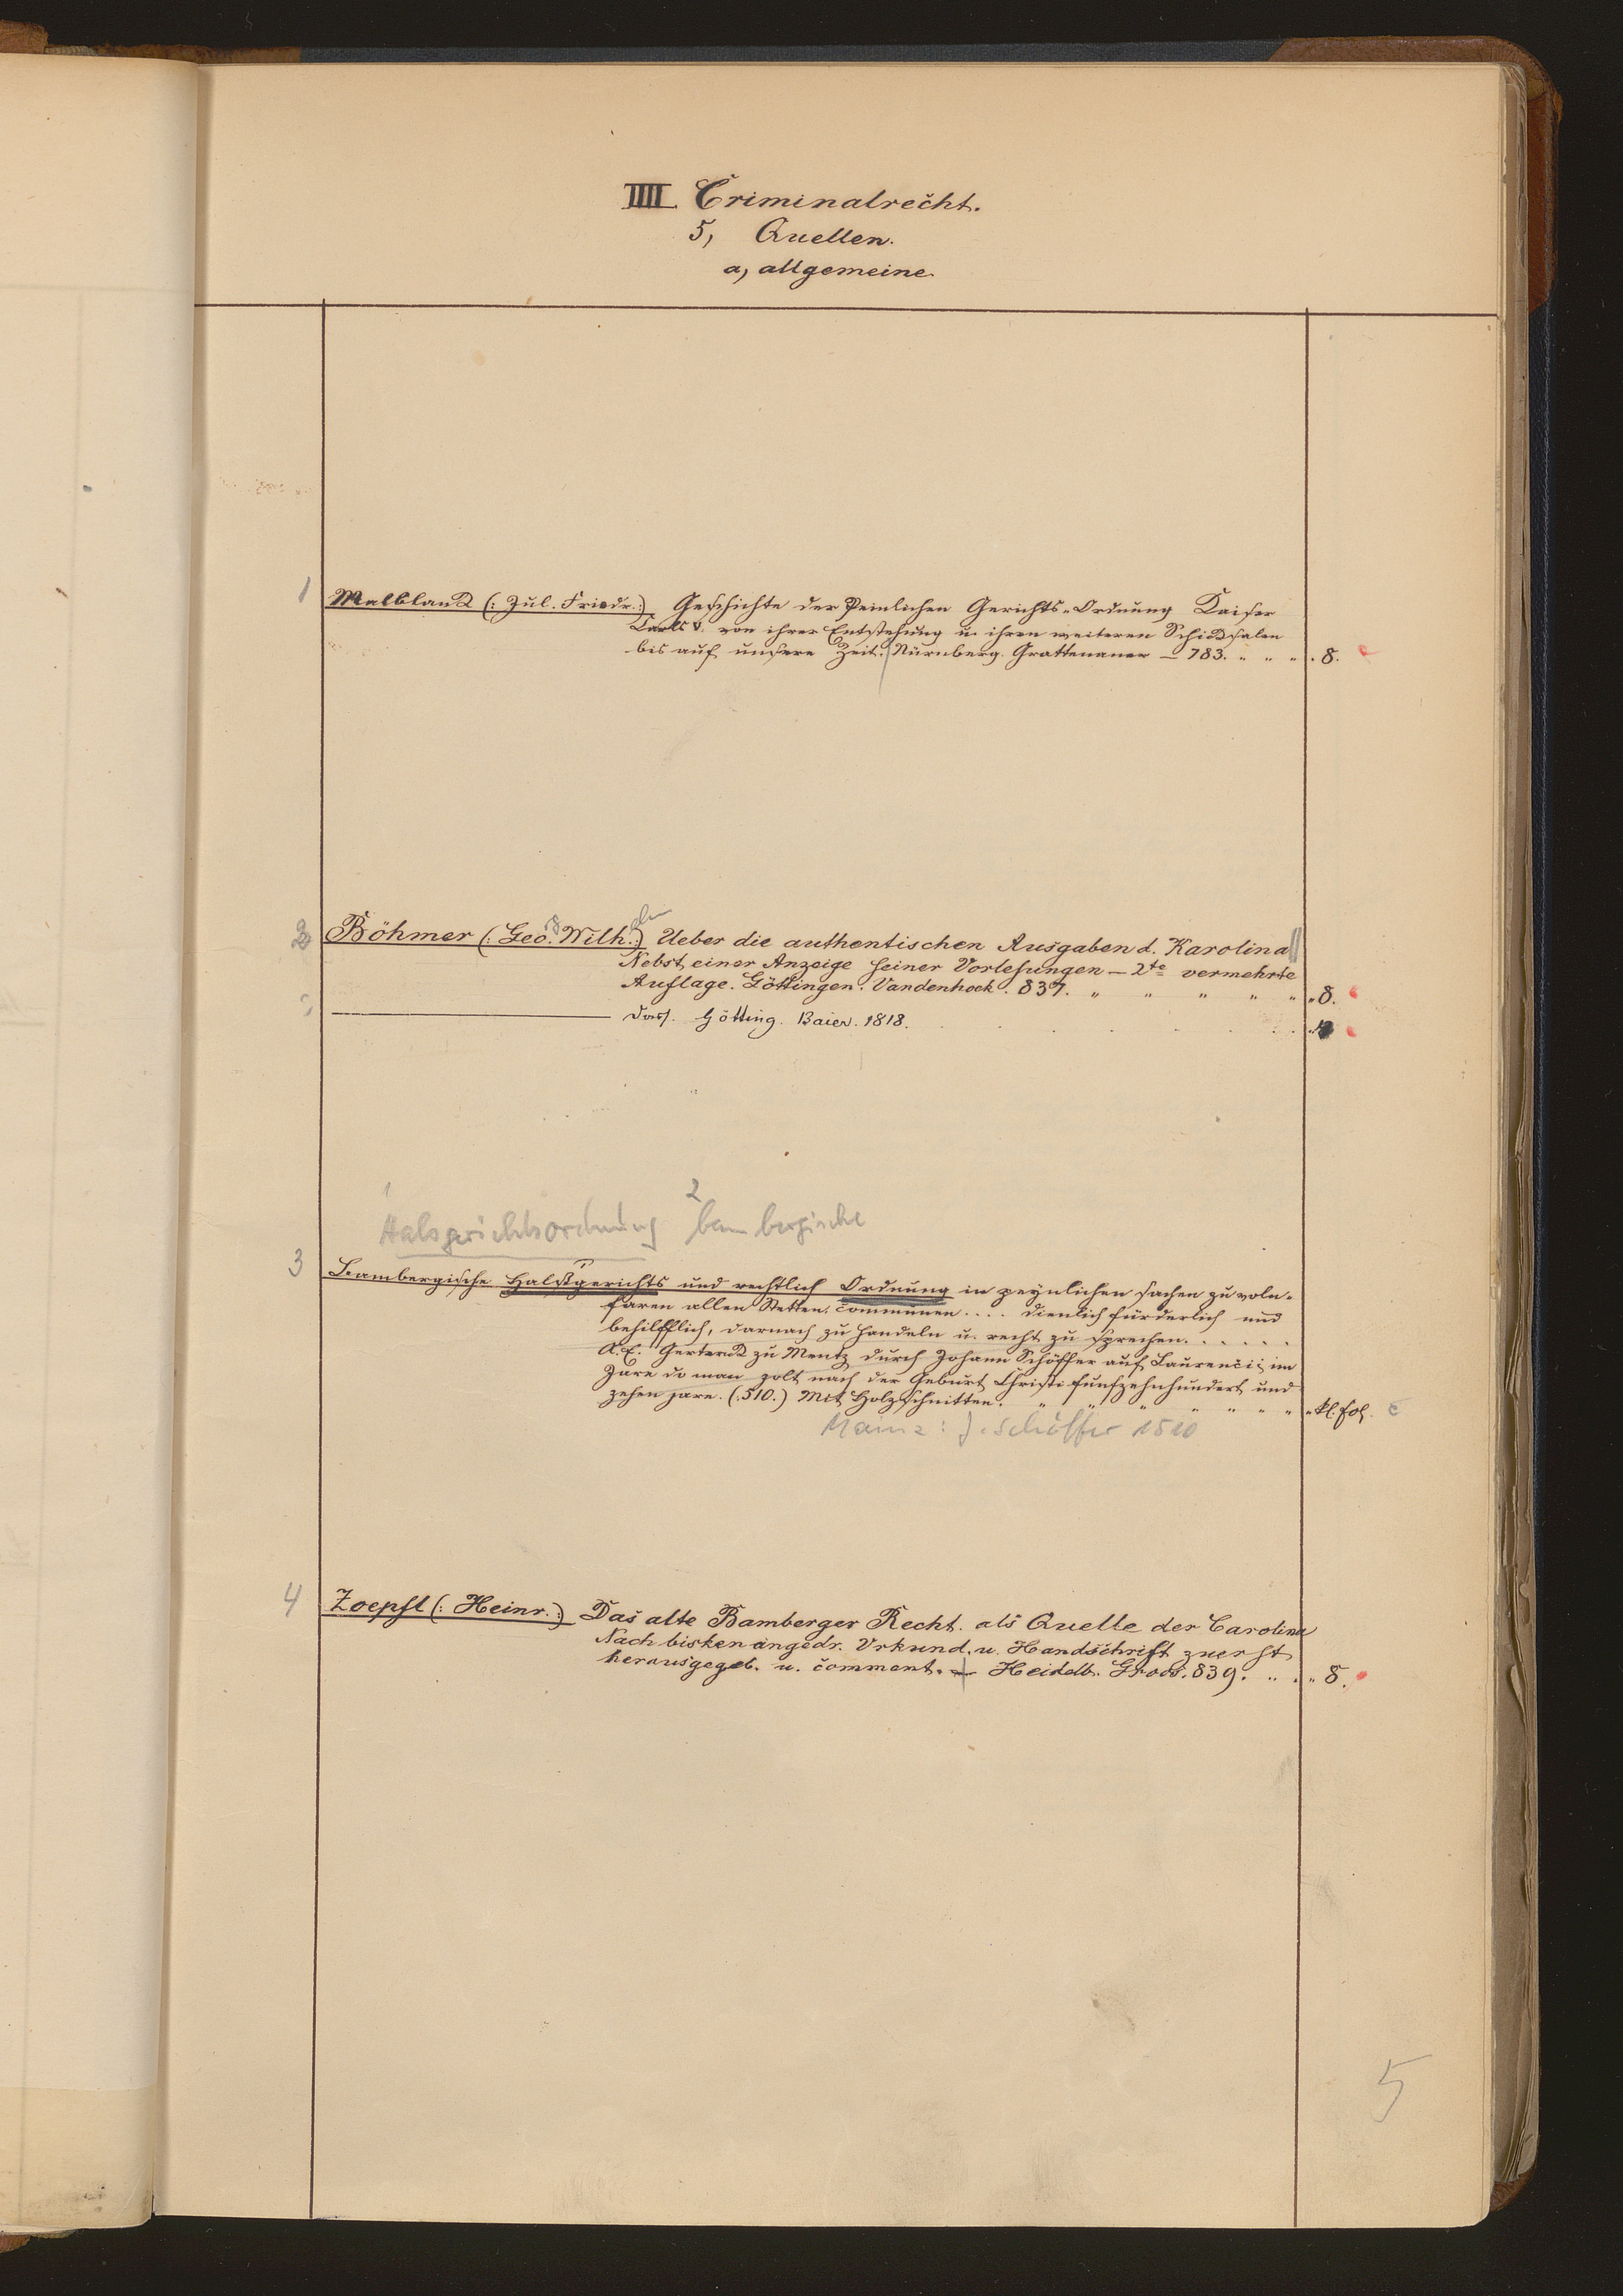 IIII Criminalrecht.
5, Quellen.
a, allgemeine.
1 Malblanck (: Jul. Friedr.:) Geschichte der Peinlichen Gerichts-Ordnung Kaiser
Carls V. von ihrer Entstehung u. ihren weiteren Schicksalen
bis auf unsere Zeit. Nürnberg. Grattenauer — 783. „ „ „ . 8.
2 Böhmer (: Geo. Wilh.:) Ueber die authentischen Ausgaben d. Karolina
Nebst einer Anzeige seiner Vorlesungen — 2te vermehrte
Auflage. Göttingen. Vandenhoek. 837. „ „ „ „ „ „ 8.
dass. Götting. Baier. 1818.
1 2
Halsgerichtsordnung bambergische
3 Bambergische Halßgerichts und rechtlich Ordnung in peynlichen sachen zu voln-
faren allen Stetten, communen . . . . dienlich fürderlich und
behilfflich, darnach zu handeln u. recht zu sprechen. . . . . .
A.E. Getruckt zu Mentz durch Johann Schöffer auf Laurencii im
Jare do man zalt nach der Geburt Christi funfzehnhundert und
zehen jare. (:510.) Mit Holzschnitten. „ „ „ „ „ „ „ „ kl. fol.
Mainz: J. Schöffer 1510
4 Zoepfl (: Heinr.:) Das alte Bamberger Recht. als Quelle der Carolina
Nach bisher ungedr. Urkund. u. Handschrift zuerst
herausgegeb. u. comment. — Heidelb. Groos. 839. „ „ „ 8.
5